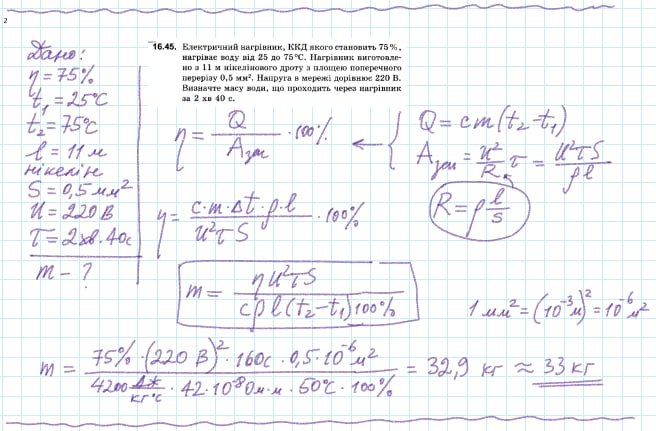 2
Дано:
η = 75%
t₁ = 25°C
t₂ = 75°C
l = 11 м
нікелін
S = 0,5 мм²
U = 220 В
τ = 2хв. 40с
m – ?
16.45. Електричний нагрівник, ККД якого становить 75%,
нагріває воду від 25 до 75°С. Нагрівник виготовле-
но з 11 м нікелінового дроту з площею поперечного
перерізу 0,5 мм². Напруга в мережі дорівнює 220 В.
Визначте масу води, що проходить через нагрівник
за 2 хв 40 с.
η = Q / Aзат · 100% ← { Q = cm(t₂ - t₁)
Aзат = U²/R τ = U²τS / ρl
R = ρ l/S
η = c·m·Δt·ρ·l / U²τS · 100%
m = ηU²τS / cρl(t₂-t₁)100%
1 мм² = (10⁻³м)² = 10⁻⁶м²
m = 75%·(220 В)²·160с·0,5·10⁻⁶м² / 4200 Дж/кг°С · 42·10⁻⁸Ом·м·50°С·100% = 32,9 кг ≈ 33 кг